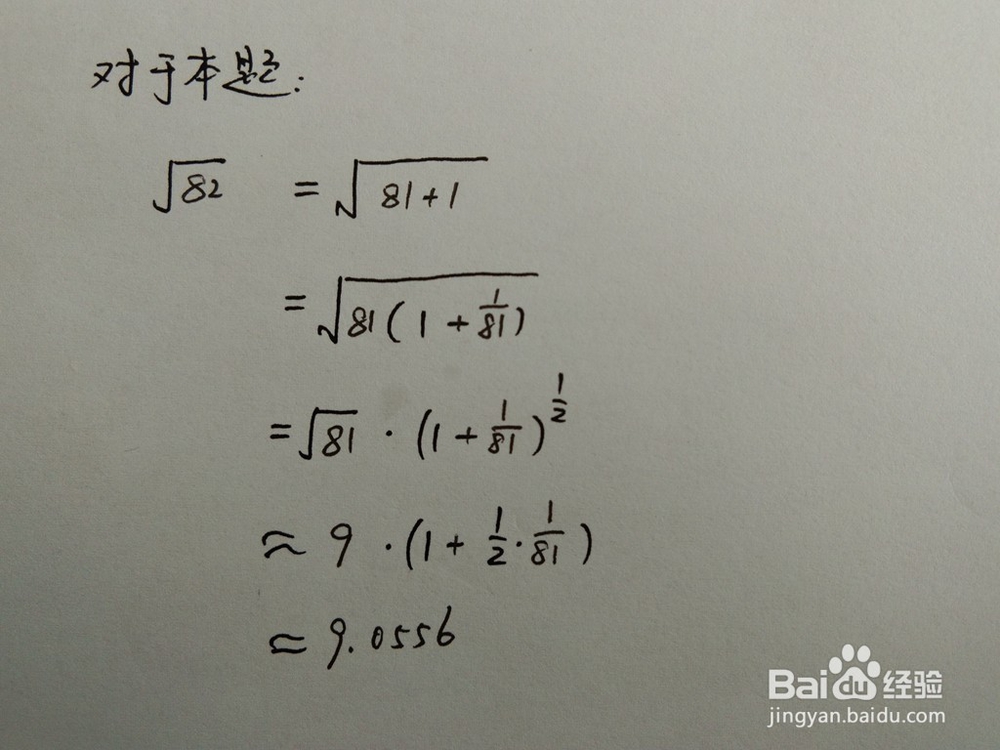 对于本题:
√82 = √(81+1)
= √(81(1+1/81))
= √81 · (1+1/81)^(1/2)
≈ 9 · (1+1/2·1/81)
≃ 9.0556
Baidu 经验
jingyan.baidu.com